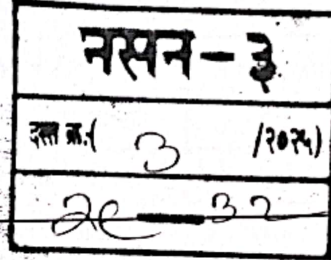 नसन-३
दस्त क्र.( 3 /२०२५)
२९ — 32